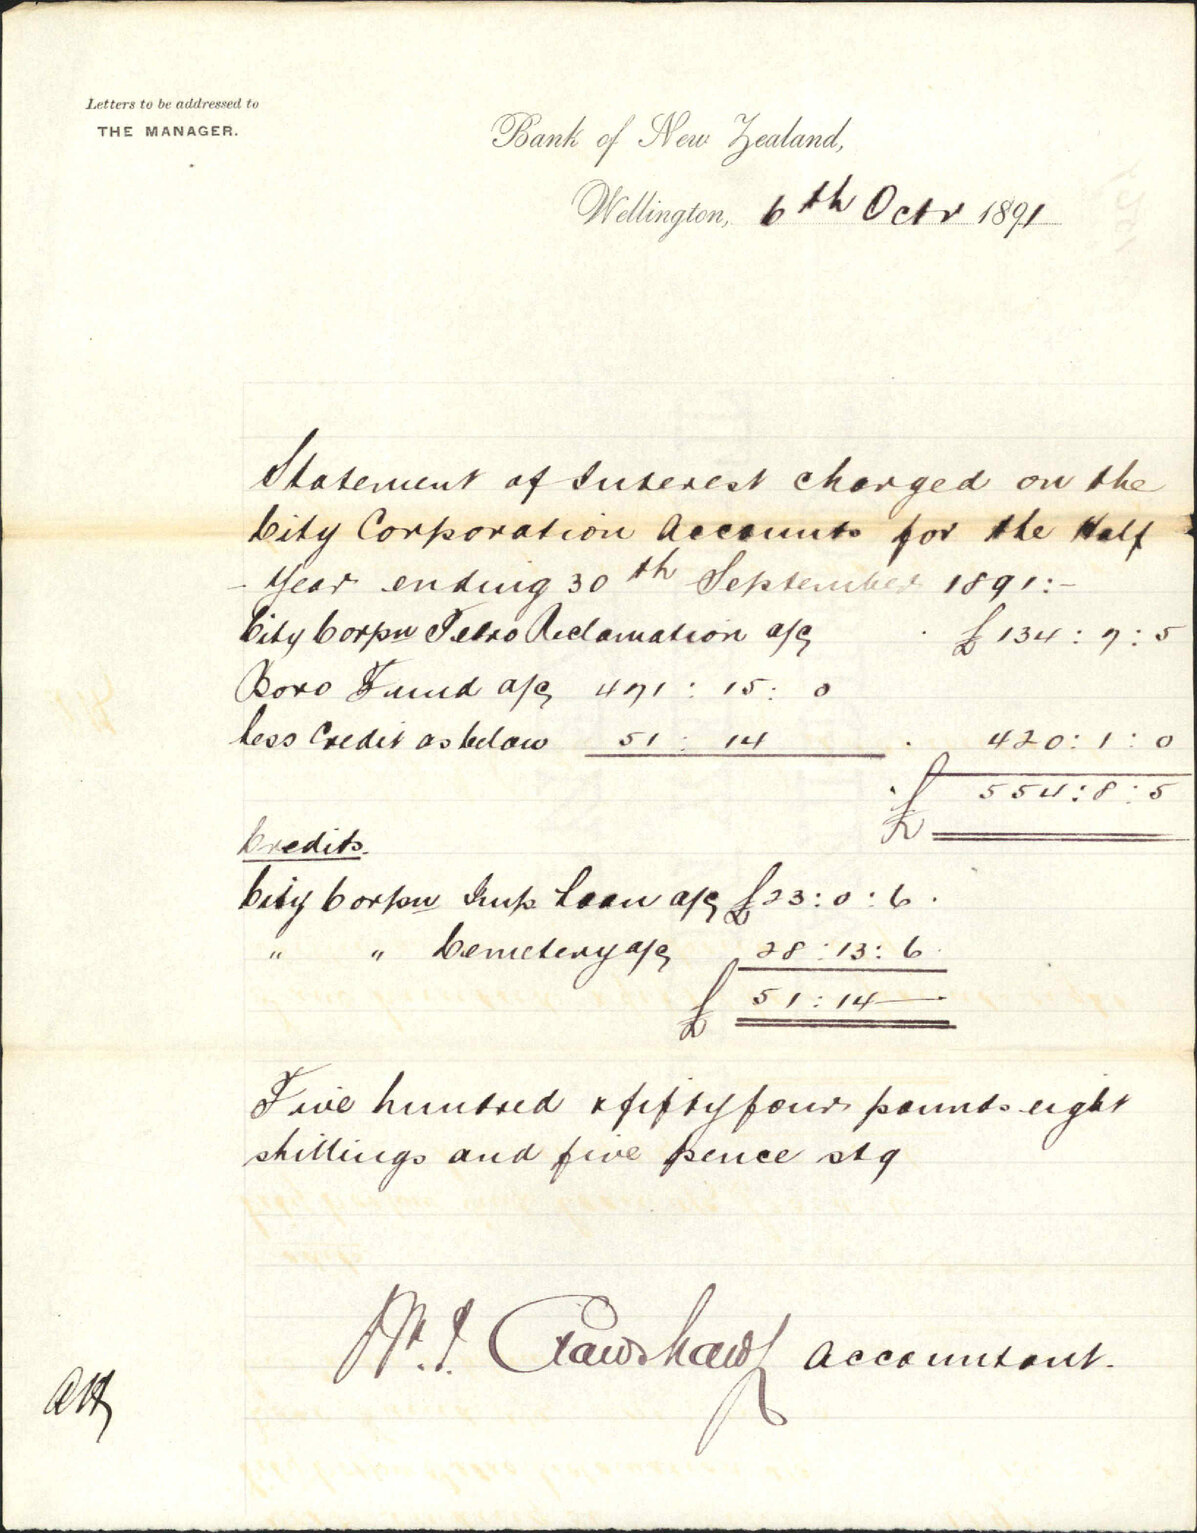 Letters to be addressed to
THE MANAGER.
Bank of New Zealand,
Wellington, 6th Octr 1891
Statement of Interest charged on the
City Corporation Accounts for the Half
- Year ending 30th September 1891:-
City Corpn TeAro Reclamation a/c £134:7:5
Boro Fund a/c 471:15:0
less Credit as below 51:14 420:1:0
£ 554:8:5
Credits.
City Corpn Imp Loan a/c £23:0:6.
" " Cemetery a/c 28:13:6
£ 51:14—
Five hundred & fiftyfour pounds eight
shillings and five pence stg
Crawshaw Accountant.